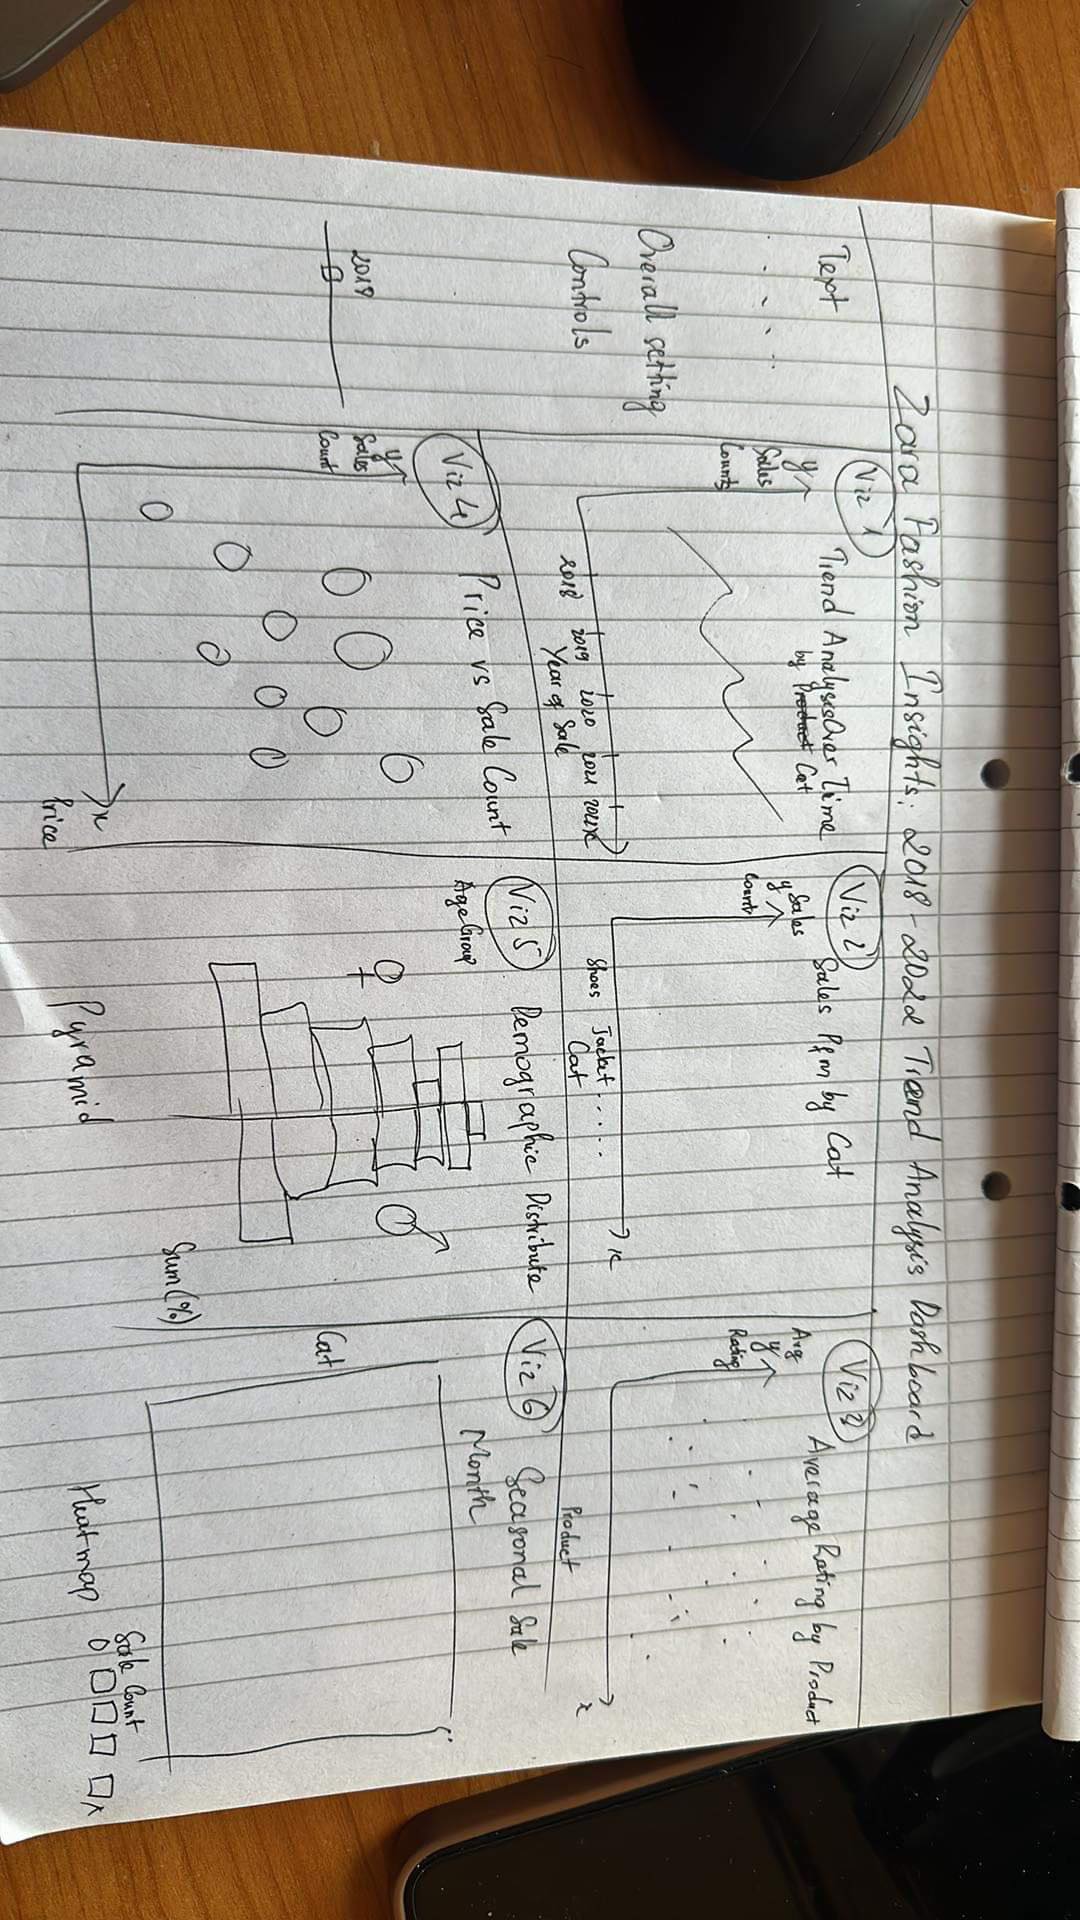 Zara Fashion Insights: 2018-2022 Trend Analysis Dashboard
Text
Overall setting
Controls
2018
Viz 1
Trend Analysis Over Time
by Product Cat
y
Sales
Counts
2018 2019 2020 2021 2022 x
Year of Sale
Viz 2
Sales Pfm by Cat
Sales
y
Count
x
Shoes Jacket .....
Cat
Viz 3
Average Rating by Product
Avg
y
Rating
x
Product
Viz 4
Price vs Sale Count
y
Sales
Count
x
Price
Viz 5
Demographic Distribute
Age Group
♀ ♂
Sum (%)
Pyramid
Viz 6
Seasonal Sale
Month
Cat
Sale Count
Heatmap